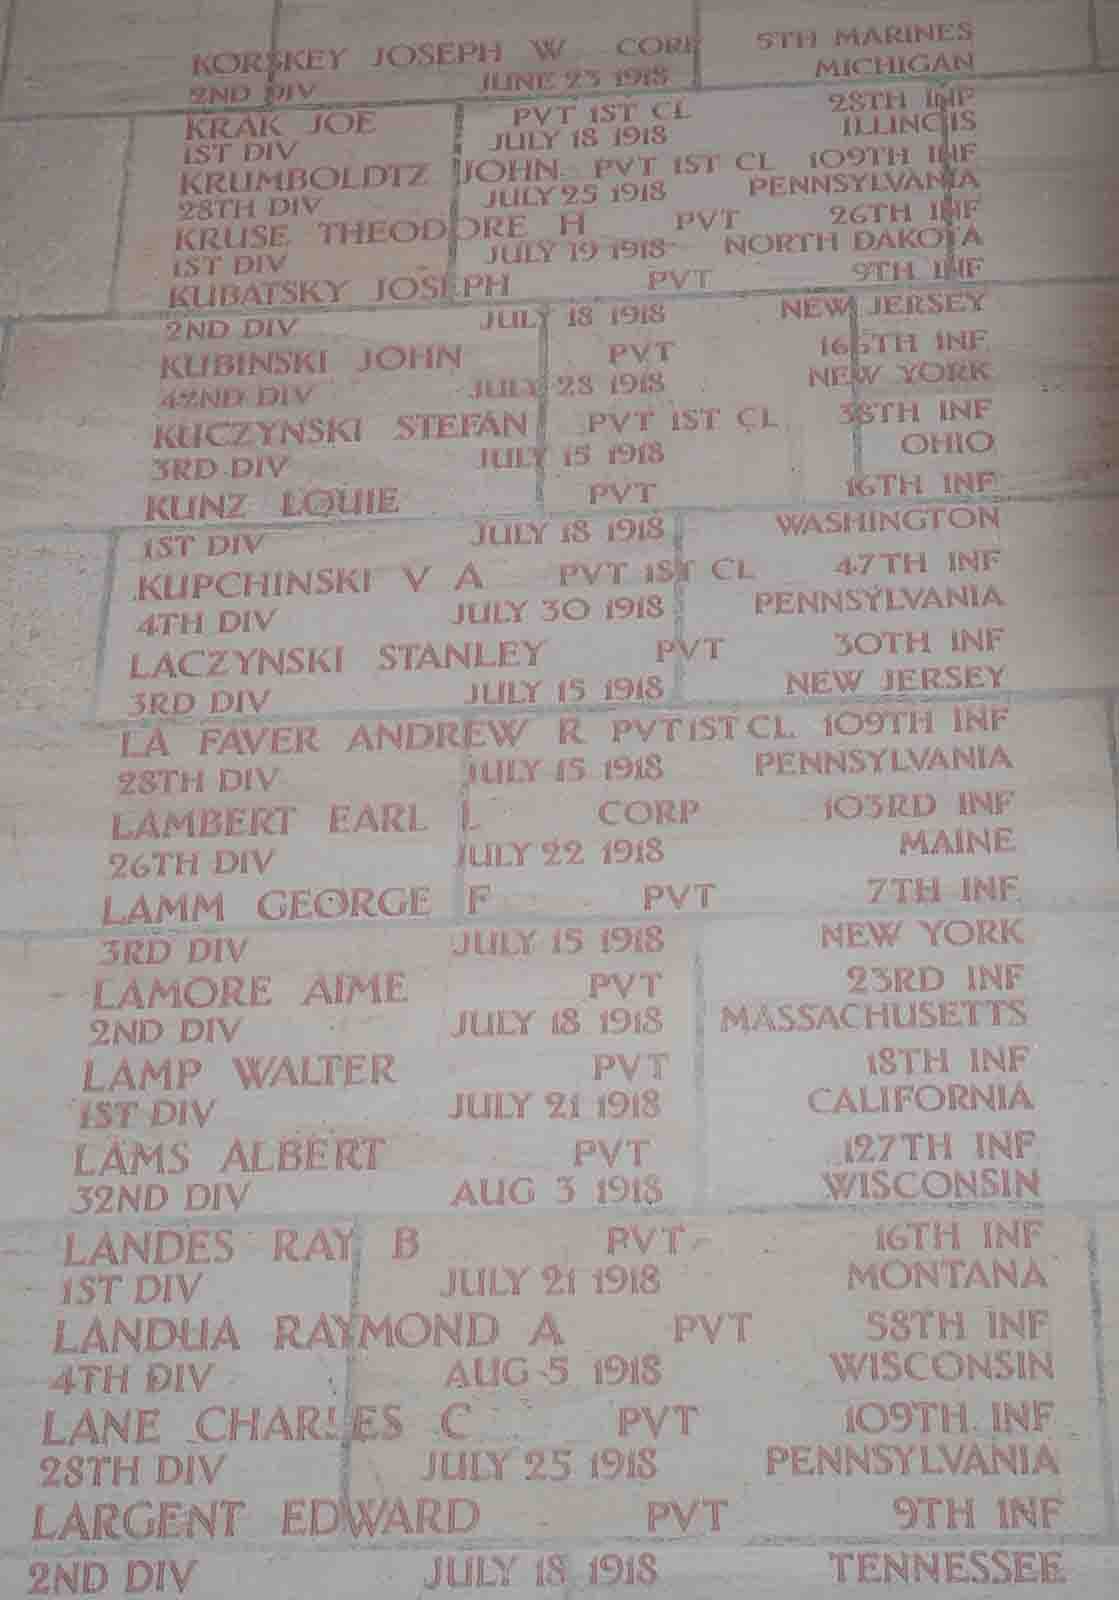 KORSKEY JOSEPH W CORP 5TH MARINES
2ND DIV JUNE 23 1918 MICHIGAN
KRAK JOE PVT 1ST CL 28TH INF
1ST DIV JULY 18 1918 ILLINOIS
KRUMBOLDTZ JOHN PVT 1ST CL 109TH INF
28TH DIV JULY 25 1918 PENNSYLVANIA
KRUSE THEODORE H PVT 26TH INF
1ST DIV JULY 19 1918 NORTH DAKOTA
KUBATSKY JOSEPH PVT 9TH INF
2ND DIV JULY 18 1918 NEW JERSEY
KUBINSKI JOHN PVT 165TH INF
42ND DIV JULY 28 1918 NEW YORK
KUCZYNSKI STEFAN PVT 1ST CL 38TH INF
3RD DIV JULY 15 1918 OHIO
KUNZ LOUIE PVT 16TH INF
1ST DIV JULY 18 1918 WASHINGTON
KUPCHINSKI V A PVT 1ST CL 47TH INF
4TH DIV JULY 30 1918 PENNSYLVANIA
LACZYNSKI STANLEY PVT 30TH INF
3RD DIV JULY 15 1918 NEW JERSEY
LA FAVER ANDREW R PVT 1ST CL 109TH INF
28TH DIV JULY 15 1918 PENNSYLVANIA
LAMBERT EARL L CORP 103RD INF
26TH DIV JULY 22 1918 MAINE
LAMM GEORGE F PVT 7TH INF
3RD DIV JULY 15 1918 NEW YORK
LAMORE AIME PVT 23RD INF
2ND DIV JULY 18 1918 MASSACHUSETTS
LAMP WALTER PVT 18TH INF
1ST DIV JULY 21 1918 CALIFORNIA
LAMS ALBERT PVT 127TH INF
32ND DIV AUG 3 1918 WISCONSIN
LANDES RAY B PVT 16TH INF
1ST DIV JULY 21 1918 MONTANA
LANDUA RAYMOND A PVT 58TH INF
4TH DIV AUG 5 1918 WISCONSIN
LANE CHARLES C PVT 109TH INF
28TH DIV JULY 25 1918 PENNSYLVANIA
LARGENT EDWARD PVT 9TH INF
2ND DIV JULY 18 1918 TENNESSEE